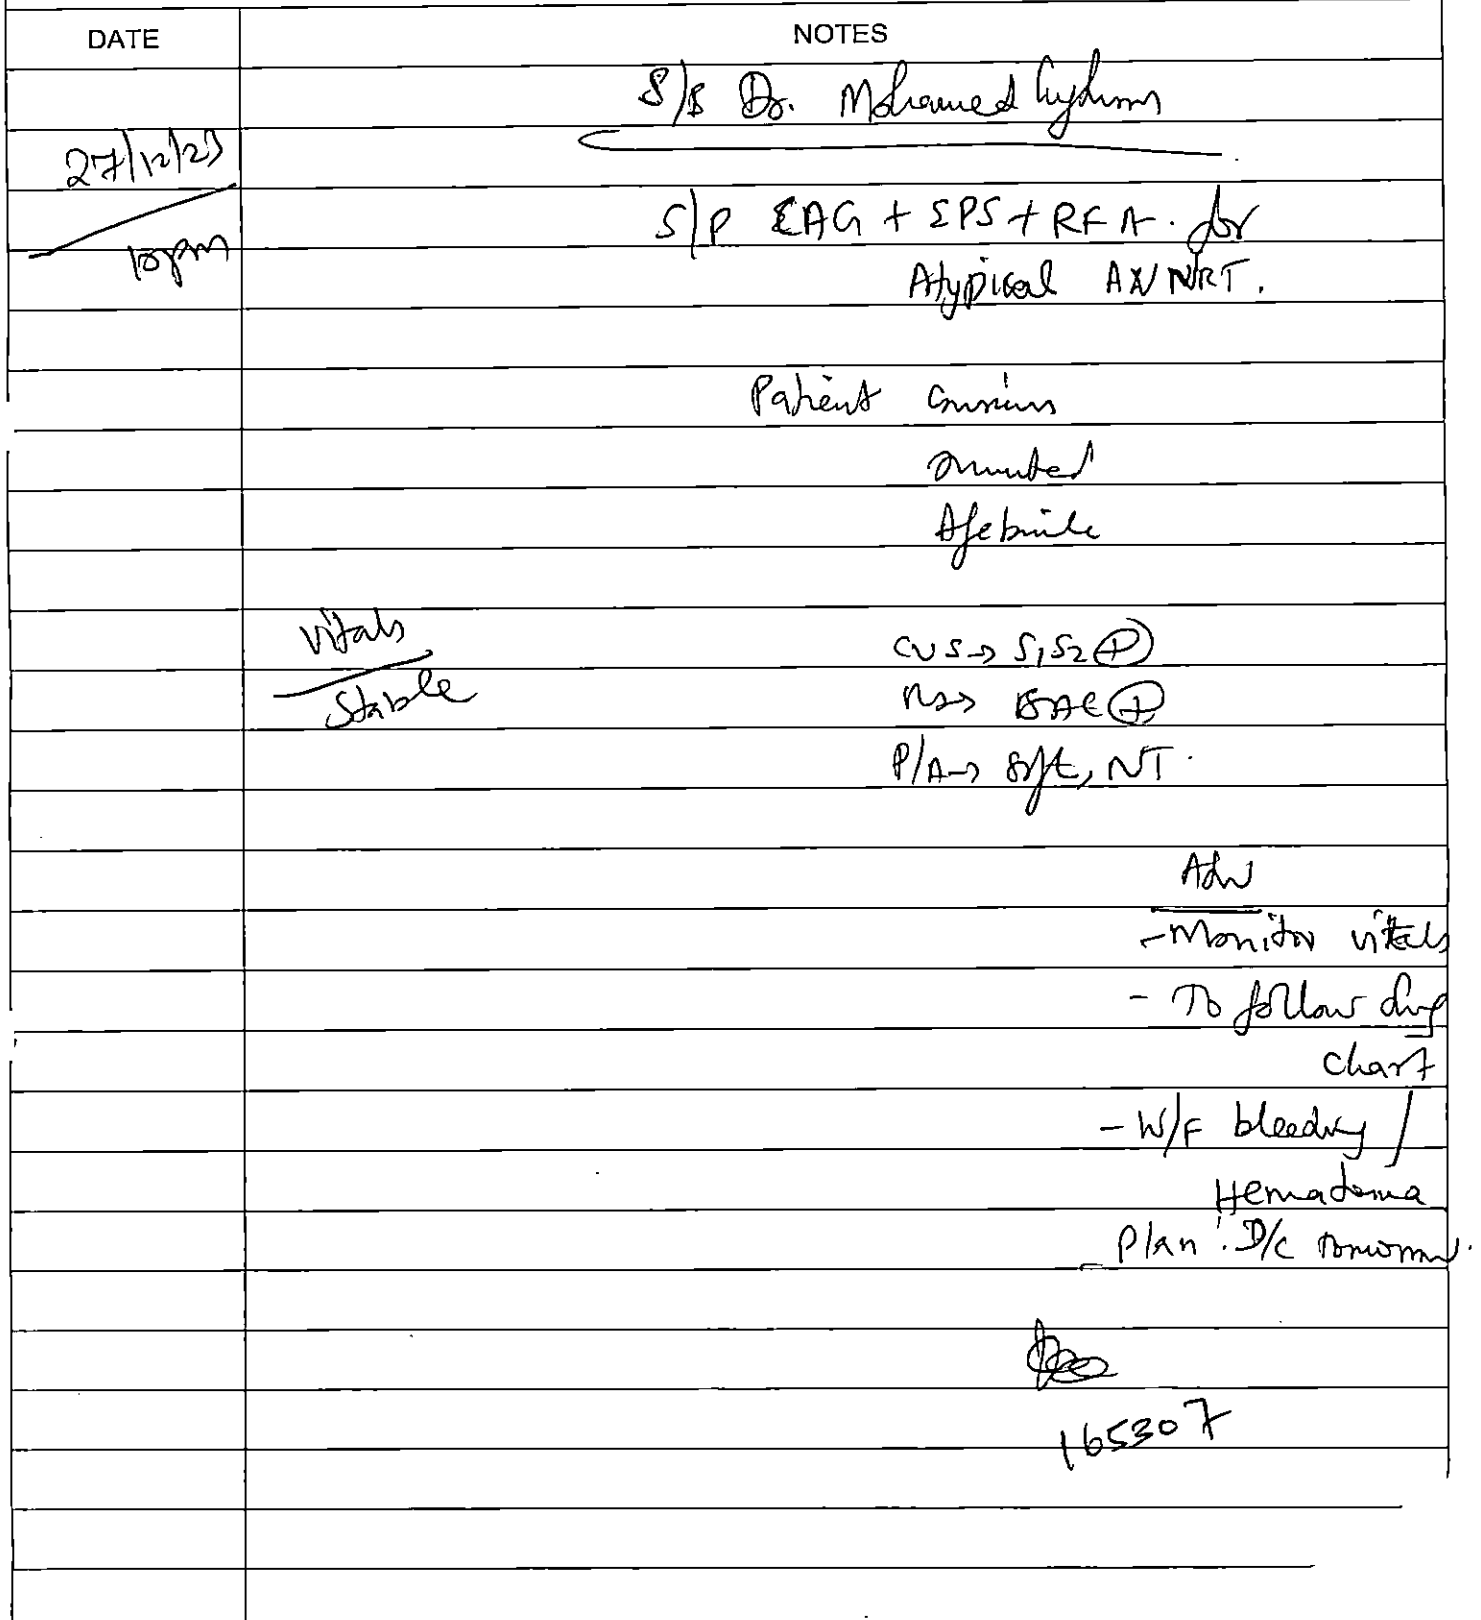 DATE NOTES
S/B Dr. Mohamed
27/12/23
S/P CAG + EPS + RFA. for
10pm
Atypical AVNRT.
Patient conscious
oriented
Afebrile
Vitals CVS → S1S2 (+)
Stable RS → BAE (+)
P/A → soft, NT.
Adv
- Monitor vitals
- To follow drug
chart
- W/F bleeding /
Hematoma
- Plan : D/C tomorrow.
165307